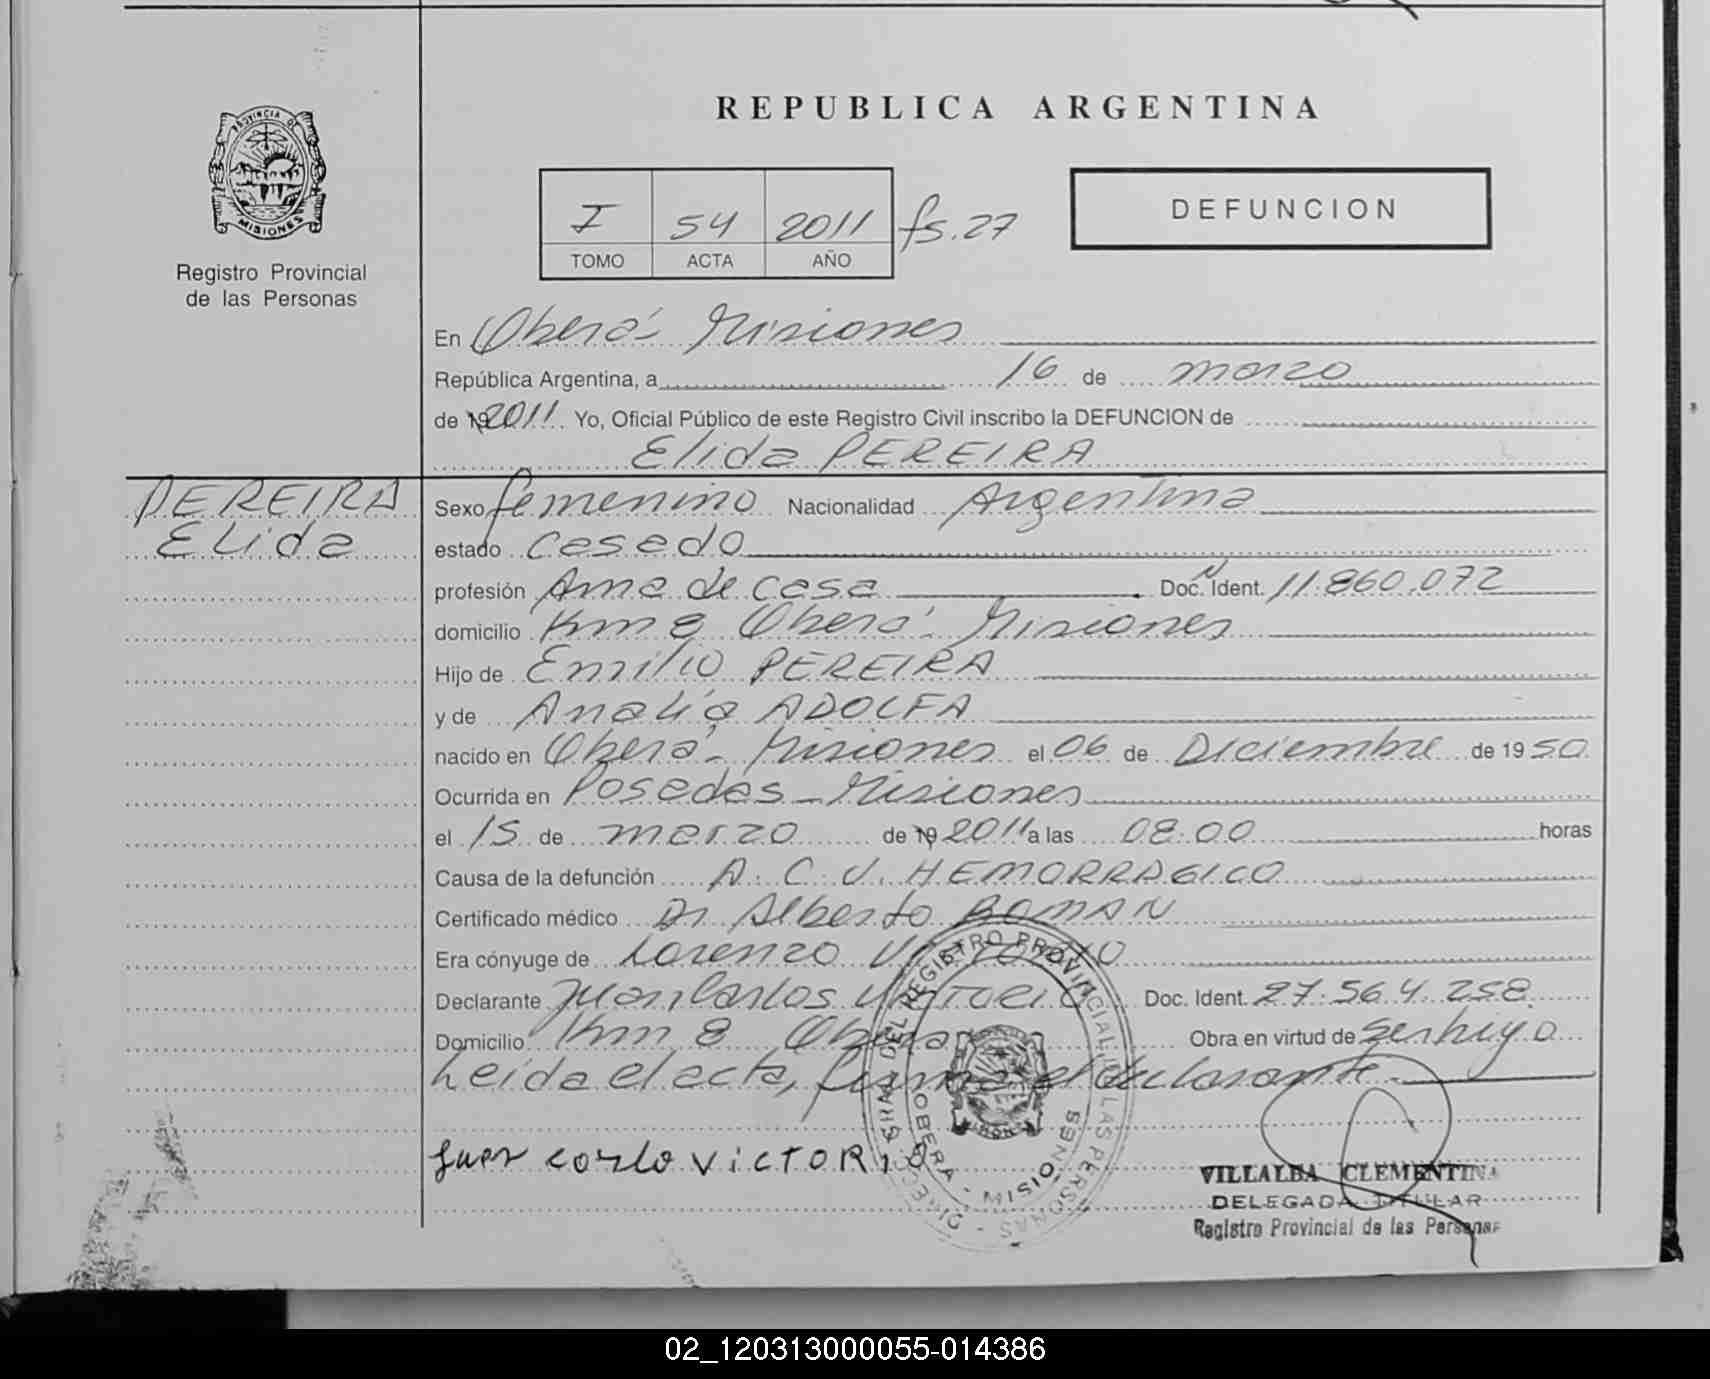 REPUBLICA ARGENTINA
PROVINCIA DE
MISIONES
Registro Provincial
de las Personas
I 54 2011 fs. 27
TOMO ACTA AÑO
DEFUNCION
En Oberá - Misiones
República Argentina, a 16 de marzo
de 19 2011. Yo, Oficial Público de este Registro Civil inscribo la DEFUNCION de
Elida PEREIRA
PEREIRA
Elida
Sexo femenino Nacionalidad Argentina
estado casado
profesión Ama de casa Doc. Ident. 11.860.072
domicilio Km 8 Oberá - Misiones
Hijo de Emilio PEREIRA
y de Analia ADOLFA
nacido en Oberá - Misiones el 06 de Diciembre de 1950
Ocurrida en Posadas - Misiones
el 15 de marzo de 19 2011 a las 08:00 horas
Causa de la defunción A. C. V. HEMORRAGICO
Certificado médico Dr Alberto ROMAN
Era cónyuge de Lorenzo VICTORIO
Declarante Juan Carlos VICTORIO Doc. Ident. 27.564.258
Domicilio Km 8 Obera Obra en virtud de ser hijo
Leída el acta, firma el declarante
Juan Carlo VICTORIO
DIRECC. GRAL. DEL REGISTRO PROVINCIAL DE LAS PERSONAS
OBERA - MISIONES
VILLALBA CLEMENTINA
DELEGADA TITULAR
Registro Provincial de las Personas
02_120313000055-014386